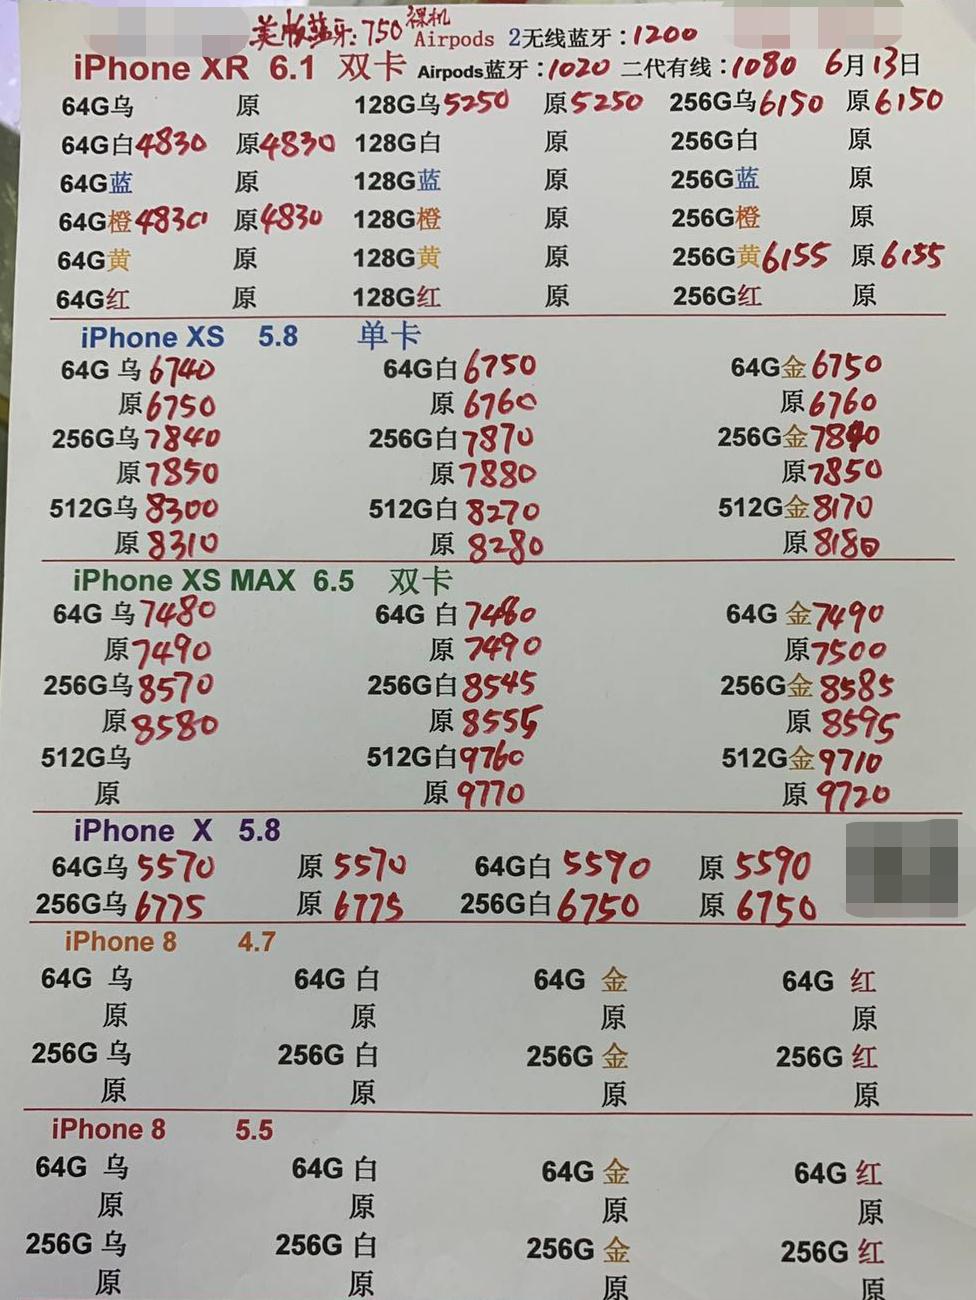 美版蓝牙:750 裸机 Airpods 2无线蓝牙:1200
iPhone XR 6.1 双卡 Airpods蓝牙:1020 二代有线:1080 6月13日
64G乌 原 128G乌5250 原5250 256G乌6150 原6150
64G白4830 原4830 128G白 原 256G白 原
64G蓝 原 128G蓝 原 256G蓝 原
64G橙4830 原4830 128G橙 原 256G橙 原
64G黄 原 128G黄 原 256G黄6155 原6155
64G红 原 128G红 原 256G红 原
iPhone XS 5.8 单卡
64G 乌6740 64G白6750 64G金6750
原6750 原6760 原6760
256G乌7840 256G白7870 256G金7840
原7850 原7880 原7850
512G乌8300 512G白8270 512G金8170
原8310 原8280 原8180
iPhone XS MAX 6.5 双卡
64G 乌7480 64G 白7480 64G 金7490
原7490 原7490 原7500
256G乌8570 256G白8545 256G金8585
原8580 原8555 原8595
512G乌 512G白9760 512G金9710
原 原9770 原9720
iPhone X 5.8
64G乌5570 原5570 64G白5590 原5590
256G乌6775 原6775 256G白6750 原6750
iPhone 8 4.7
64G 乌 64G 白 64G 金 64G 红
原 原 原 原
256G 乌 256G 白 256G 金 256G 红
原 原 原 原
iPhone 8 5.5
64G 乌 64G 白 64G 金 64G 红
原 原 原 原
256G 乌 256G 白 256G 金 256G 红
原 原 原 原